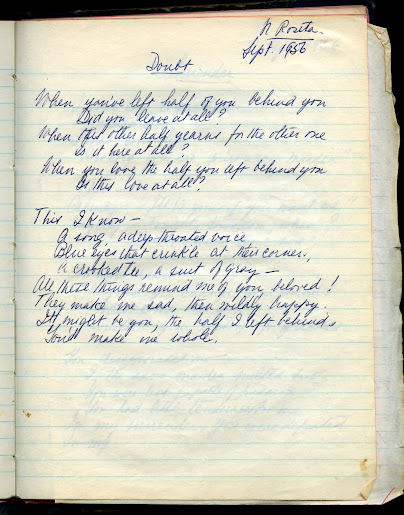 N Rosita.
Sept 1956
Doubt
When you've left half of you behind you
Did you leave at all?
When that other half yearns for the other one
Is it here at all?
When you love the half you left behind you
Is this love at all?
This I know –
A song, a deep throated voice,
Blue eyes that crinkle at their corners,
A crooked tie, a suit of gray –
All these things remind me of you beloved!
They make me sad, then wildly happy.
It might be you, the half I left behind,
You'll make me whole.